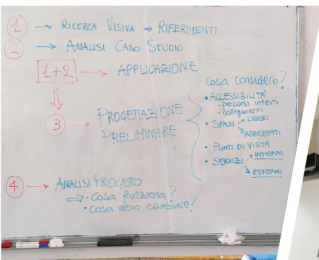 1 → RICERCA VISIVA → RIFERIMENTI
2 → ANALISI CASO STUDIO
[1+2] → APPLICAZIONE
3 → PROGETTAZIONE PRELIMINARE
Cosa considero?
• ACCESSIBILITÀ
percorsi interni
collegamenti
• SPAZI → LIBERI
→ ATTREZZATI
• PUNTI DI VISTA
• SERVIZI → INTERNI
→ ESTERNI
4 → ANALISI PROGETTO
⇒ • Cosa funziona?
• Cosa devo cambiare?